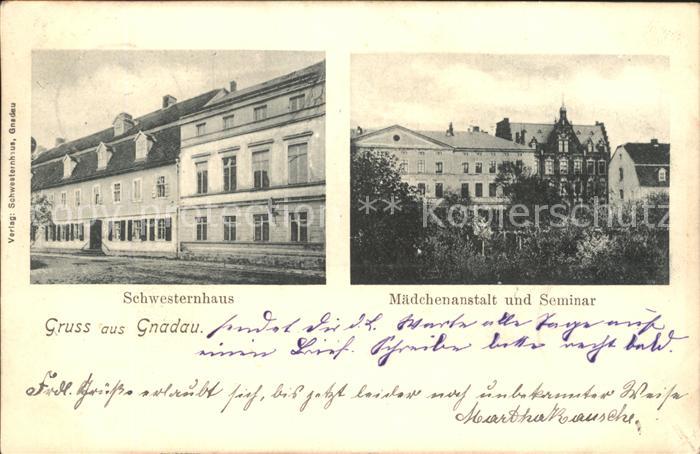 Verlag: Schwesternhaus, Gnadau
Sony protection ** Kopierschutz
Schwesternhaus
Mädchenanstalt und Seminar
Gruss aus Gnadau.
sendet die d. L. Warte alle Tage auf
einen Brief. Schreibe bitte recht bald.
Frdl. Grüße erlaubt sich, bis jetzt leider noch unbekannter Weise
Martha Rausche.